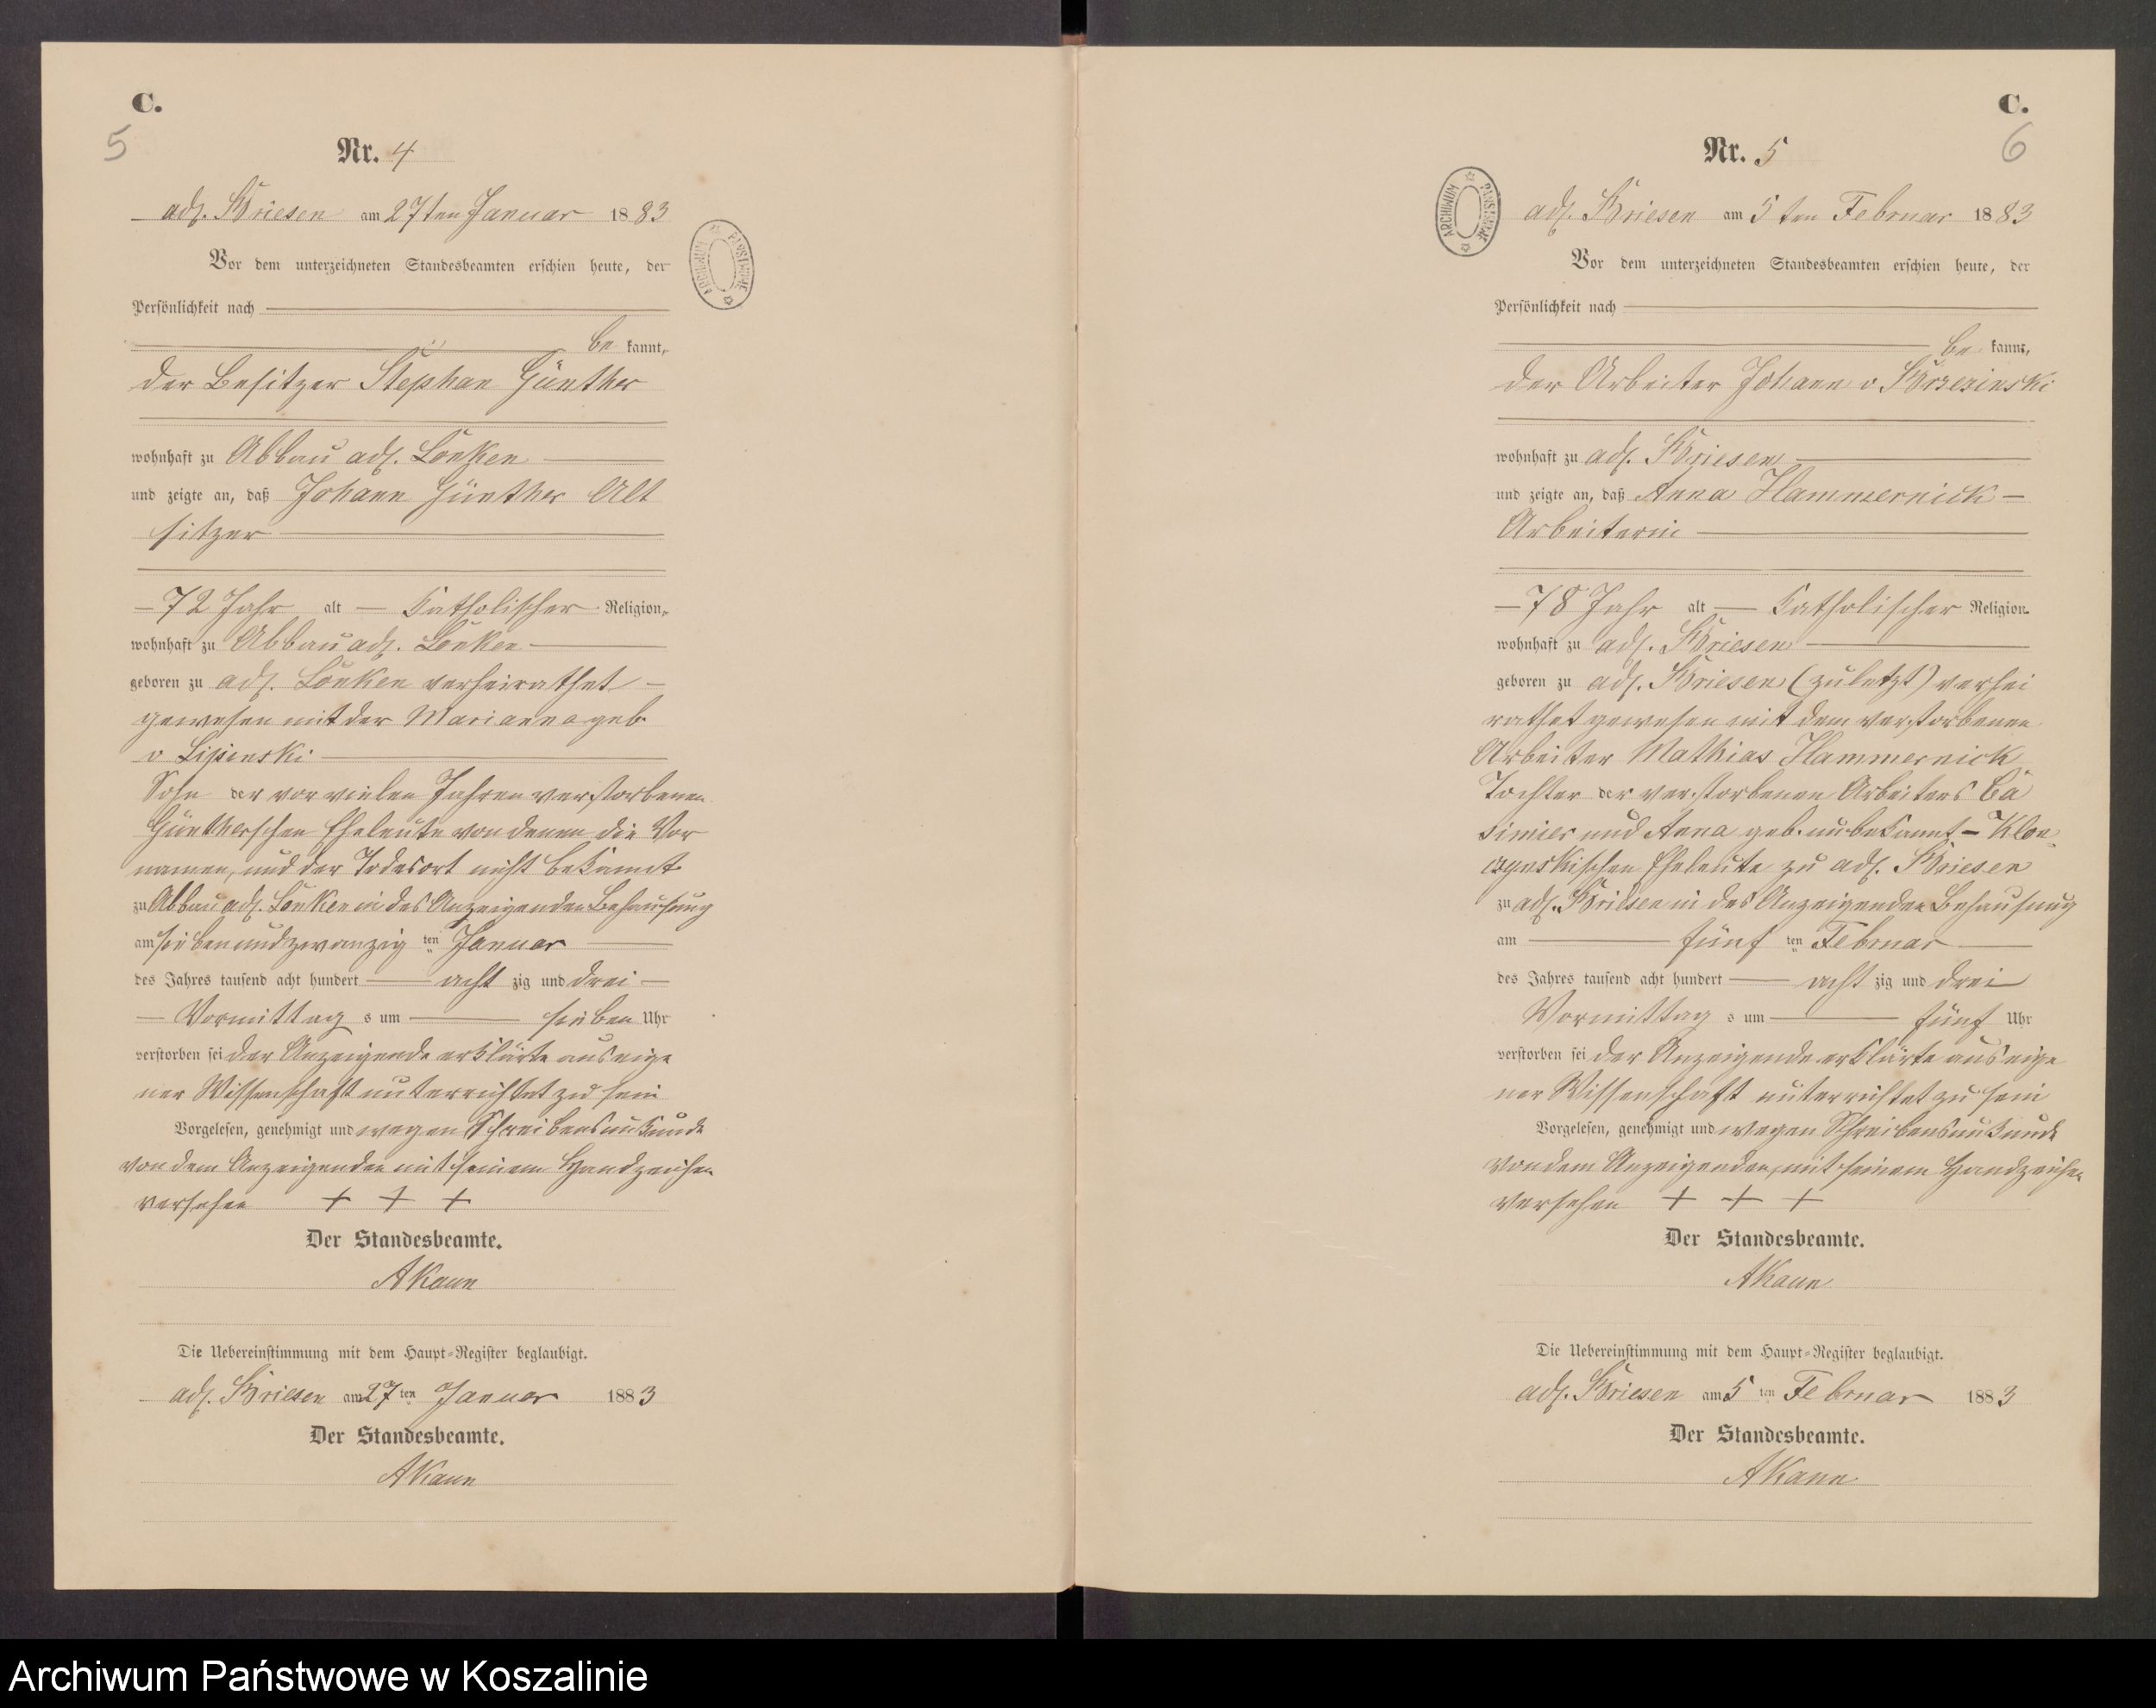 C.
5
Nr. 4
adl. Briesen am 27ten Januar 1883
Vor dem unterzeichneten Standesbeamten erschien heute, der
Persönlichkeit nach
be kannt,
der Besitzer Stephan Günther
wohnhaft zu Abbau adl. Lonken
und zeigte an, daß Johann Günther Alt
sitzer
72 Jahr alt Katholischer Religion,
wohnhaft zu Abbau adl. Lonken
geboren zu adl. Lonken verheirathet
gewesen mit der Marianna geb
v Lipinski
Sohn der vor vielen Jahren verstorbenen
Güntherschen Eheleute von denen die Vor
namen, und der Todesort nicht bekannt
zu Abbau adl. Lonken in des Anzeigenden Behausung
am sieben und zwanzig ten Januar
des Jahres tausend acht hundert acht zig und drei
Vormittag s um sieben Uhr
verstorben sei der Anzeigende erklärte aus eige
ner Wissenschaft unterrichtet zu sein
Vorgelesen, genehmigt und wegen Schreibensunkunde
von dem Anzeigenden mit seinem Handzeichen
versehen + + +
Der Standesbeamte.
A Kaun
Die Uebereinstimmung mit dem Haupt-Register beglaubigt.
adl. Briesen am 27ten Januar 1883
Der Standesbeamte.
A Kaun
ARCHIWUM PAŃSTWOWE
C.
6
Nr. 5
ARCHIWUM PAŃSTWOWE
adl. Briesen am 5 ten Februar 1883
Vor dem unterzeichneten Standesbeamten erschien heute, der
Persönlichkeit nach
be kannt,
der Arbeiter Johann v Brzezinski
wohnhaft zu adl. Briesen
und zeigte an, daß Anna Hammernick
Arbeiterin
78 Jahr alt Katholischer Religion
wohnhaft zu adl. Briesen
geboren zu adl. Briesen (zuletzt) verhei
rathet gewesen mit dem verstorbenen
Arbeiter Mathias Hammernick
Tochter der verstorbenen Arbeiters Ca
simier und Anna geb. unbekannt - Klon
czynskischen Eheleute zu adl. Briesen
zu adl. Briesen in des Anzeigenden Behausung
am fünf ten Februar
des Jahres tausend acht hundert acht zig und drei
Vormittag s um fünf Uhr
verstorben sei der Anzeigende erklärte aus eige
ner Wissenschaft unterrichtet zu sein
Vorgelesen, genehmigt und wegen Schreibensunkunde
von dem Anzeigenden, mit seinem Handzeichen
versehen + + +
Der Standesbeamte.
A Kaun
Die Uebereinstimmung mit dem Haupt-Register beglaubigt.
adl. Briesen am 5 ten Februar 1883
Der Standesbeamte.
A Kaun
Archiwum Państwowe w Koszalinie